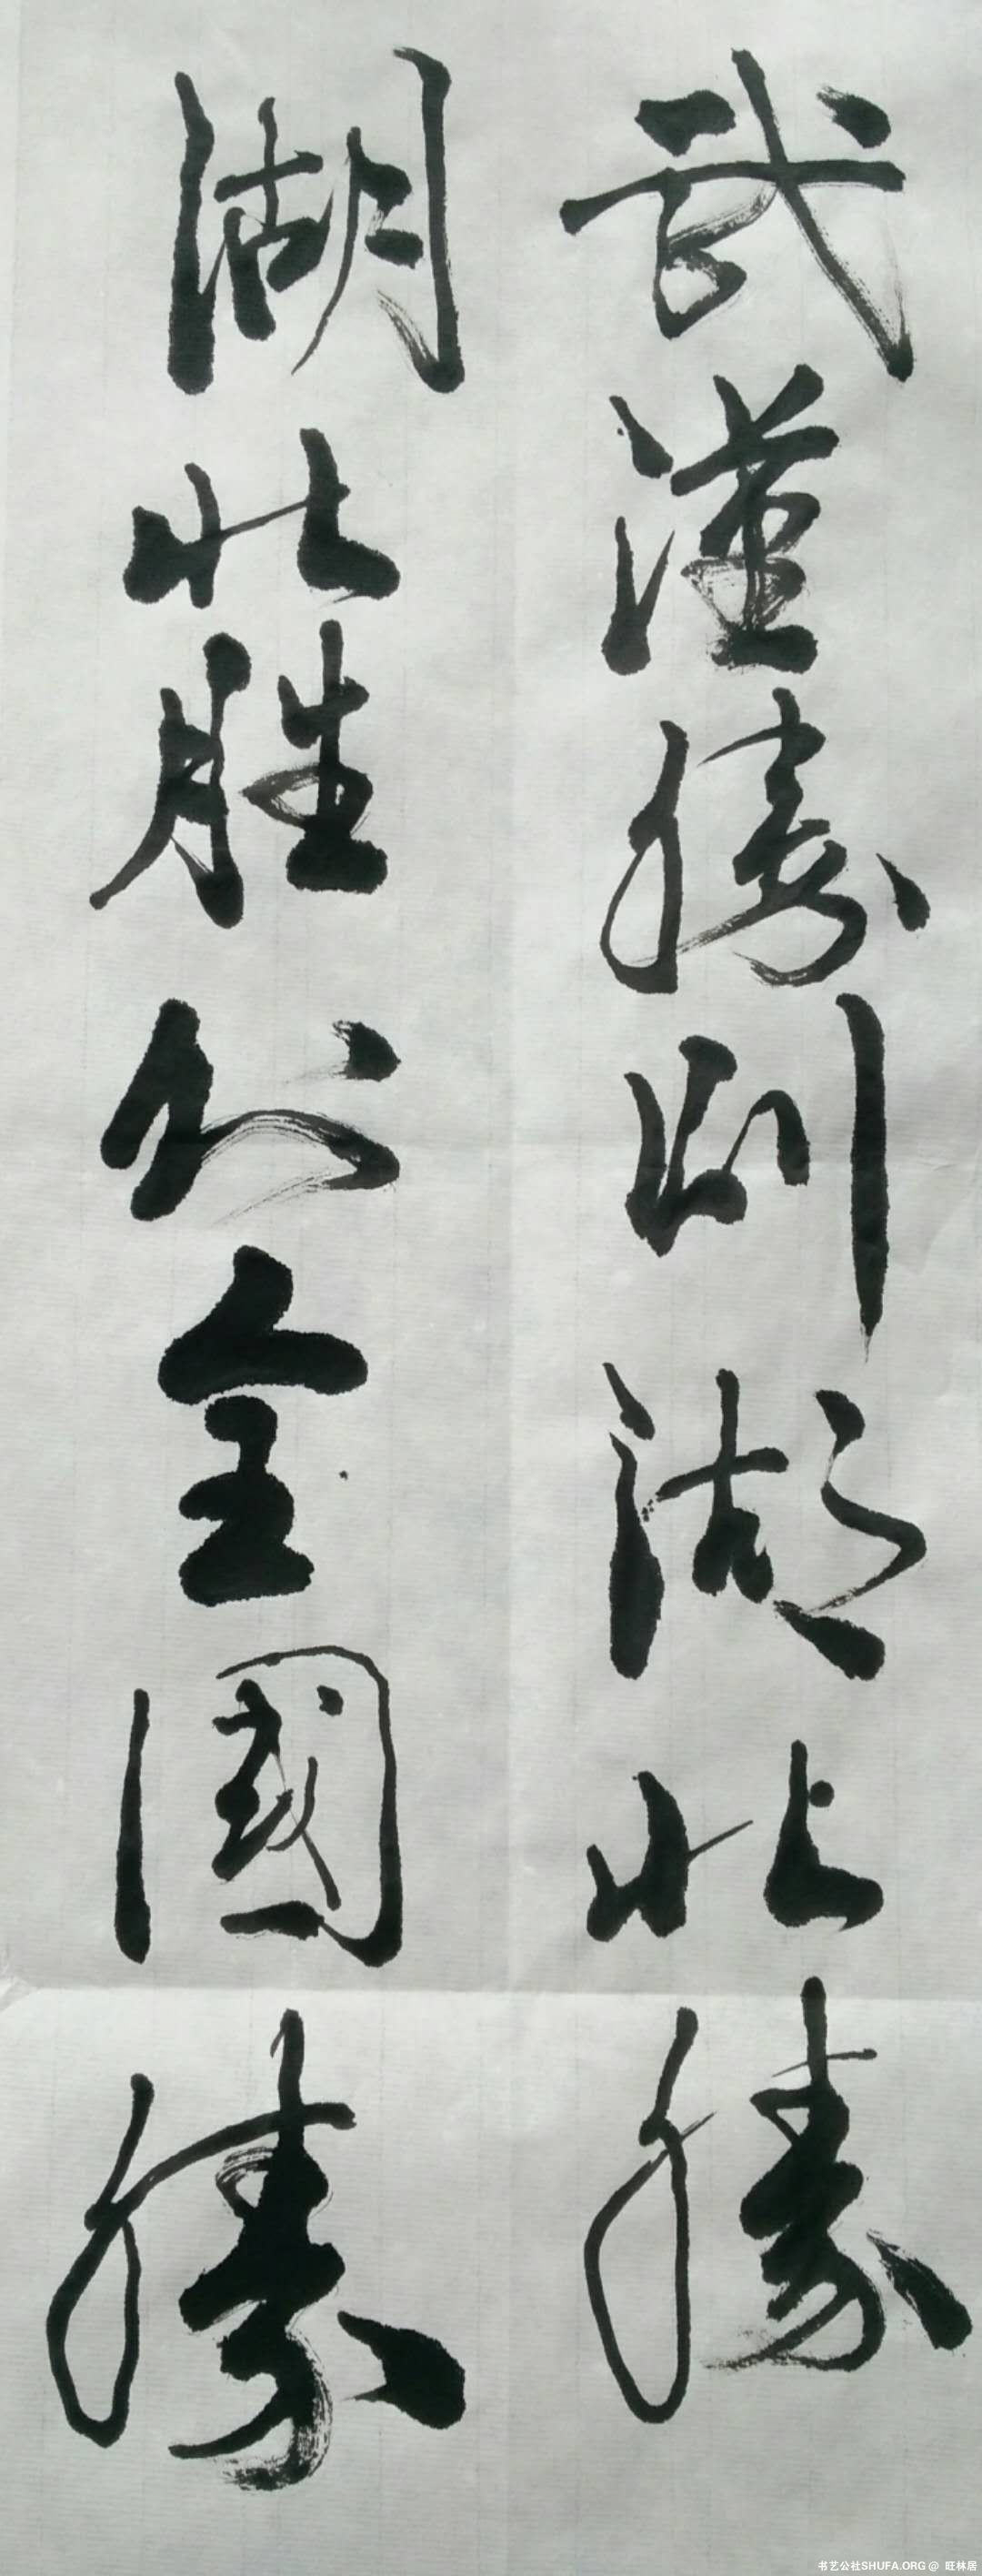 武漢勝則湖北勝
湖北胜則全國勝
书艺公社SHUFA.ORG @ 旺林居